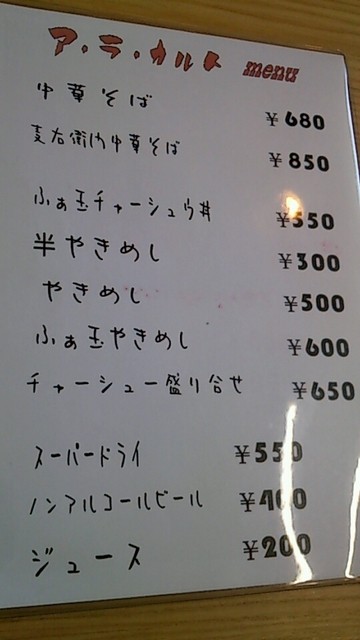 ア・ラ・カルト menu
中華そば ¥680
麦右衛門中華そば ¥850
ふぁ玉チャーシュウ丼 ¥350
半やきめし ¥300
やきめし ¥500
ふぁ玉やきめし ¥600
チャーシュー盛り合せ ¥650
スーパードライ ¥550
ノンアルコールビール ¥400
ジュース ¥200